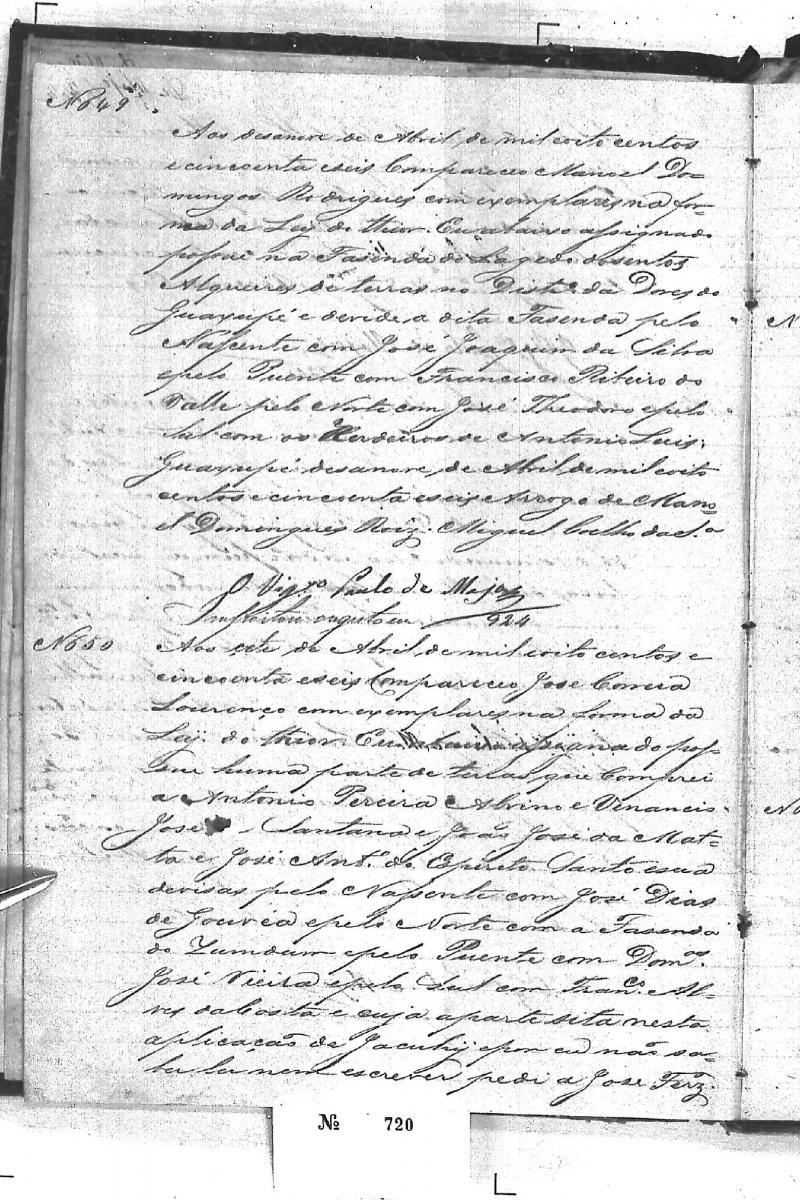 No 49.
Aos desanove de Abril, de mil oito centos
e cincoenta e seis Compareceo Manoel Do-
mingos Rodrigues com exemplares na for-
ma da Ley do theor. Eu abaixo assignado
possui na Fasenda do Lagedo dosentos
Alqueires de terras no Dist.º da Dores do
Guaxupé e devide, a dita Fasenda pelo
Nassente com José Joaquim da Silva
epelo Puente com Francisco Ribeiro do
Valle pelo Norte com José Theodoro epelo
Sul com os Herdeiros de Antonio Luis.
Guaxupé desanove, de Abril, de mil oito
centos e cincoenta e seis Arrogo de Mano-
el Domingues Roiz. Miguel Coelho da S.ª
O Vigr.º Paulo de
924
No 50
Aos sete de Abril, de mil oito centos e
cincoenta e seis Compareceo José Correia
Lourenço com exemplares na forma da
Ley. do theor. Eu abaixo assignado pos-
sue huma parte de terras que Comprei
a Antonio Pereira Alvino e Venancio
José Santana e João José da Mat-
ta e José Ant.º do Espirito Santo e sua
devisas pelo Nassente com José Dias
de Gouvêa epelo Norte com a Fasenda
do Zumdum epelo Puente com Dom.ºs
José Vieira epelo Sul com Fran.co Al-
ves da Costa e cuja aparte sita nesta
aplicação de Jacuhy epor eu não sa-
ber ler nem escrever pedi a Jose Ferz.
Nº 720